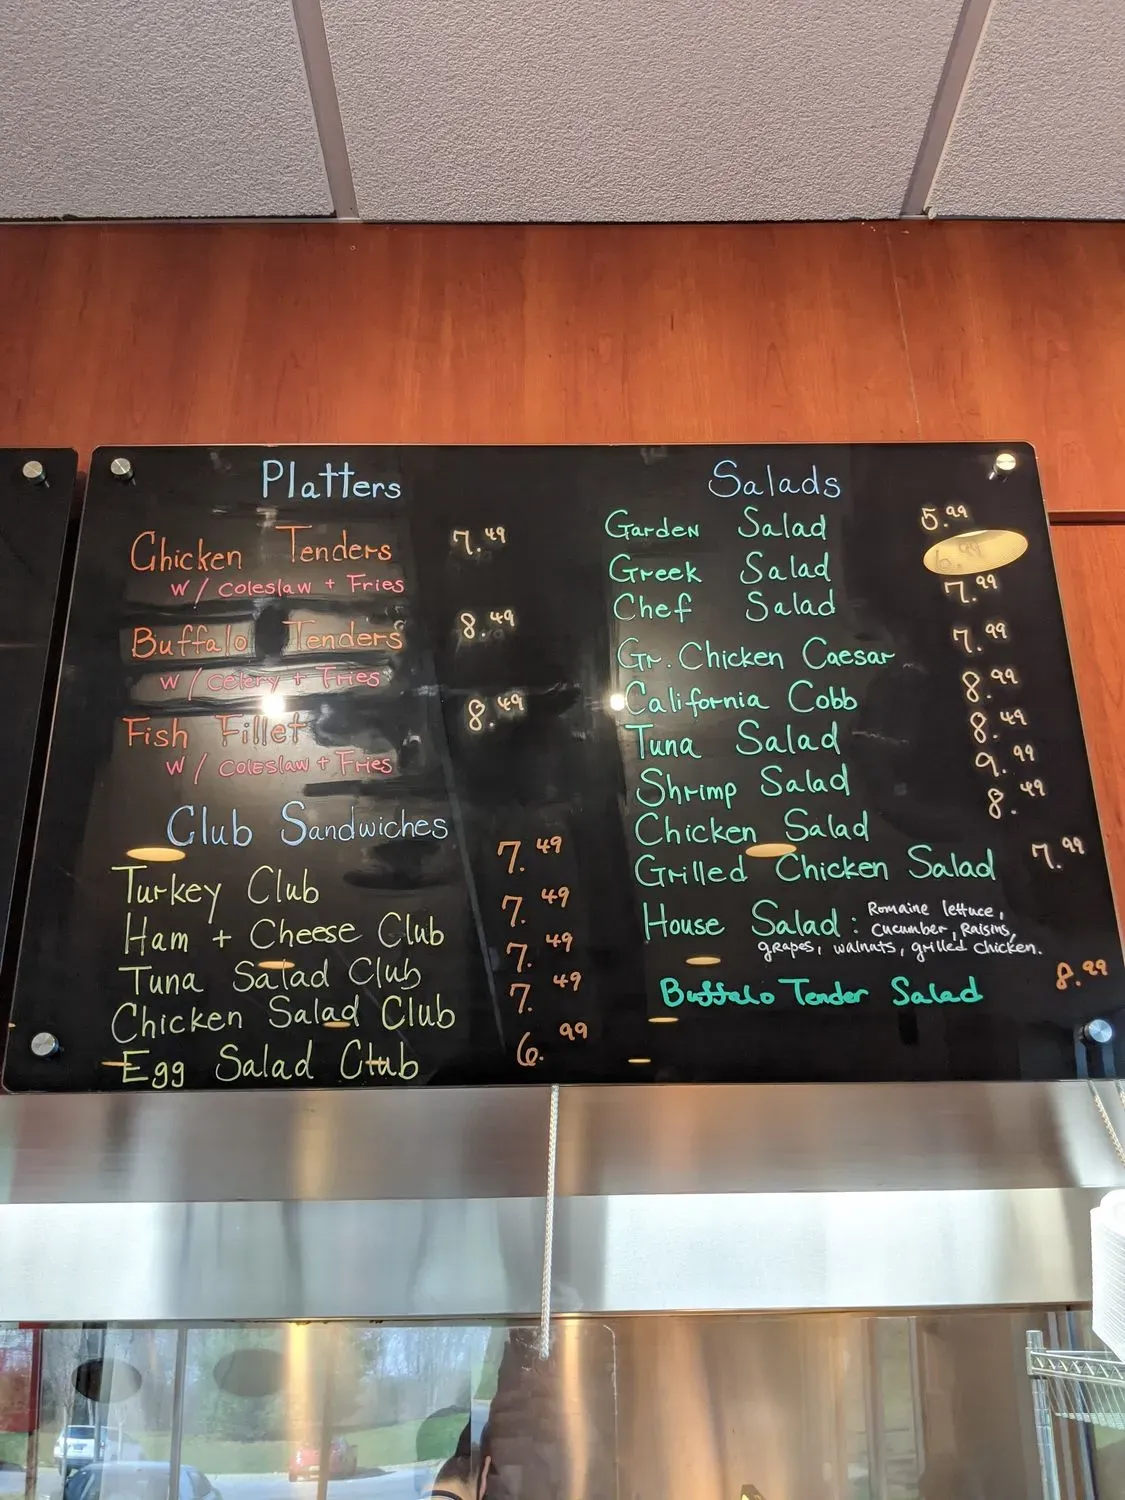 Platters
Chicken Tenders 7.49
w/ coleslaw + Fries
Buffalo Tenders 8.49
w/ celery + Fries
Fish Fillet 8.49
w/ coleslaw + Fries
Club Sandwiches
Turkey Club 7.49
Ham + Cheese Club 7.49
Tuna Salad Club 7.49
Chicken Salad Club 7.49
Egg Salad Club 6.99
Salads
Garden Salad 5.99
Greek Salad 6.99
Chef Salad 7.99
Gr. Chicken Caesar 7.99
California Cobb 8.99
Tuna Salad 8.49
Shrimp Salad 9.99
Chicken Salad 8.49
Grilled Chicken Salad 7.99
House Salad : Romaine lettuce,
cucumber, Raisins,
grapes, walnuts, grilled chicken.
Buffalo Tender Salad 8.99